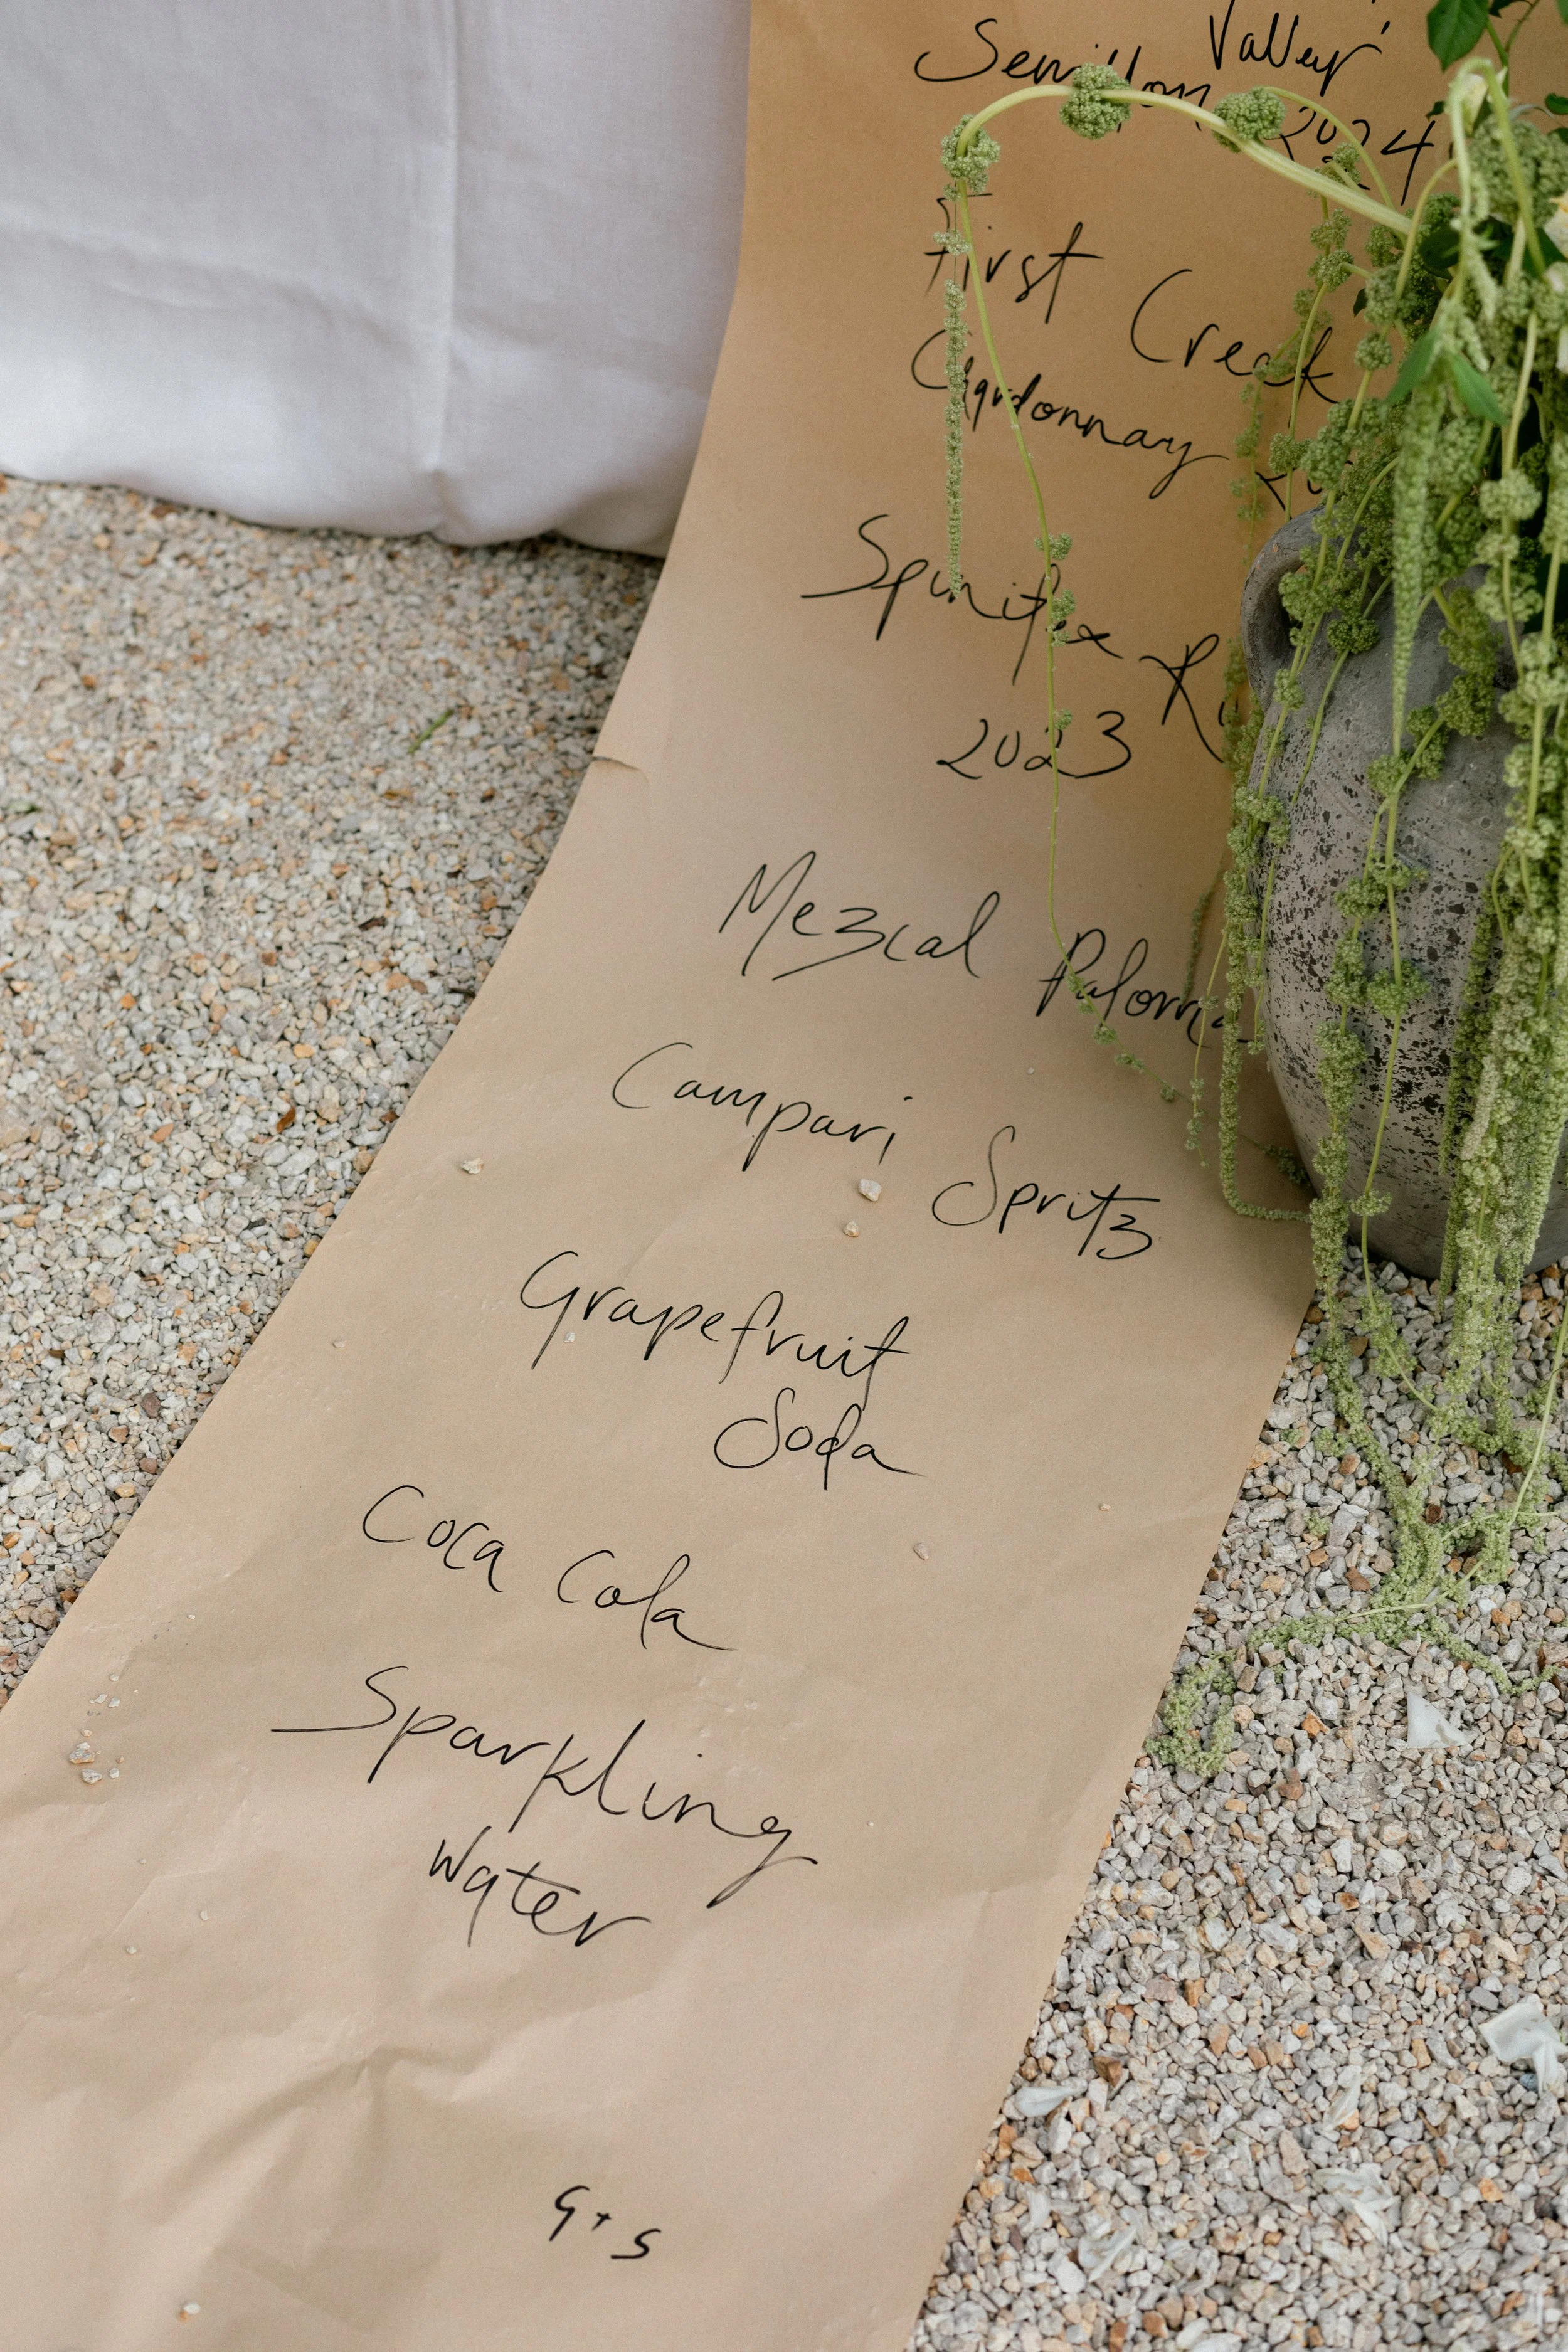 Valley
Semillon 2024
First Creek
Chardonnay
Spinifex
2023
Mezcal Paloma
Campari Spritz
Grapefruit
Soda
Coca Cola
Sparkling
Water
G + S